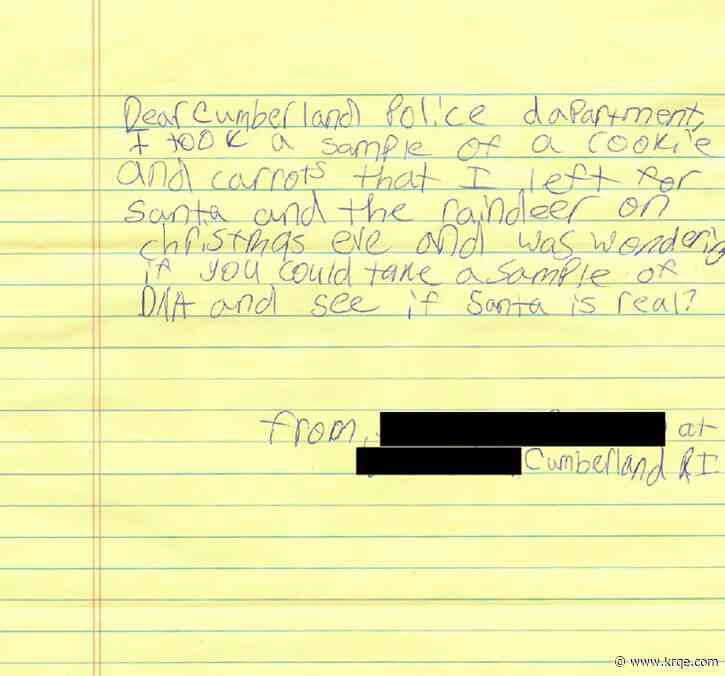 Dear Cumberland Police dapartment,
I took a sample of a cookie
and carrots that I left for
Santa and the raindeer on
christmas eve and was wondering
if you could take a sample of
DNA and see if Santa is real?
from,
at
Cumberland RI
www.krqe.com